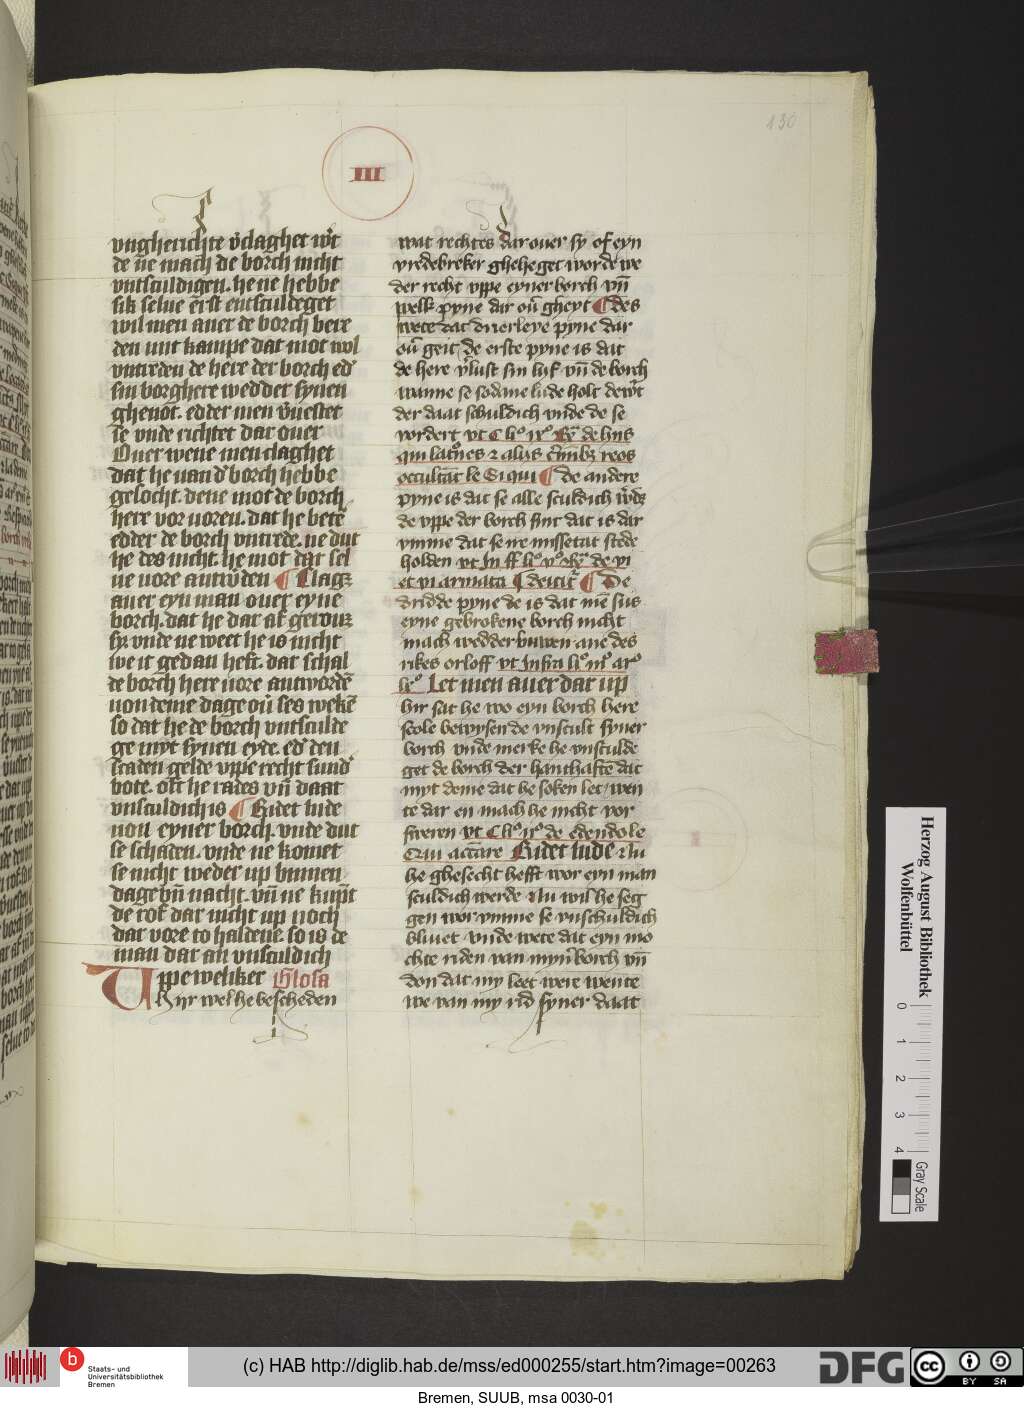 130
III
vngherichte v̄claghet wͦt
de ne mach de borch nicht
vntsculdigen. he ne hebbe
sik selue erst entsculdeget
wil men auer de borch bere
den mit kampe dat mot wol
vntreden de here der borch ed'
sin borghere wedder synen
ghenot. edder men v̄uestet
se vnde richtet dar ouer
Ouer wene men claghet
dat he uan d' borch hebbe
gesocht. dene mot de borch
here vor uoren. dat he betē
edder de borch vntrede. ne dut
he des nicht. he mot dar sel
ue uore antw̄den ¶ Clagʒ
auer eyn man ouer eyne
borch. dat he dar af gerouʒ
sy. vnde ne weet he is nicht
we it gedan heft. dar schal
de borch here uore antwordē
uon deme dage ou̅ ses wekē
so dat he de borch vntsculde
ge myt synen eyde. ed' den
scaden gelde vppe recht sund'
bote. oft he rades vn̄ daat
vnsculdich is ¶ Ridet lude
uon eyner borch. vnde dut
se schaden. vnde ne komet
se nicht weder up bynnen
dage vn̄ nacht. vn̄ ne kumt
de rof dar nicht up noch
dar vore to haldene so is de
man dar an vnsculdich
Uppe weliker Glosa
Hyr wel he bescheden
wat rechtes dar ouer sy of eyn
vredebreker gheheget worde we
der recht vppe eyner borch vn̄
welk pyne dar ou̅ gheyt ¶ des
wete dat drierleye pyne dar
ou̅ geit de erste pyne is dat
de here v̄lust sin lif vn̄ de borch
wanne se sodane lude holt de w̄t
der daat schuldich vnde de se
vordert vt C li° ix° de hiis
qui latones z aliis cimbʒ reos
occultat le Si qui ¶ de andere
pyne is dat se alle sculdich w̄dē
de vppe der borch sint dat is dar
vmme dat se ire missetat stede
holden vt In ff li° de vi
et vi armata ¶ De
dridde pyne de is dat mē sus
eyne gebrokene borch nicht
mach wedder buwen ane des
rikes orloff vt Infra li° iii° ar°
Let men auer dar up
hir sat he wo eyn borch here
scole bewysen de vnscult syner
borch vnde merke he vnsculde
get de borch der hanthaftē dat
myt deme dat he soken let, wen
te dar en mach he nicht vor
sweren vt C li° ii° de edendo le
Qui accare Ridet lude Nu
he ghesecht hefft wor eyn man
sculdich werde Nu wil he seg
gen wor vmme se vnschuldich
bliuet vnde wete dat eyn mo
chte riden van myn' borch vn̄
don dat my leet were wente
we van my rid syner daat
Herzog August Bibliothek
Wolfenbüttel
0 1 2 3 4
Gray Scale
b
Staats- und
Universitätsbibliothek
Bremen
(c) HAB http://diglib.hab.de/mss/ed000255/start.htm?image=00263
DFG
cc BY SA
Bremen, SUUB, msa 0030-01